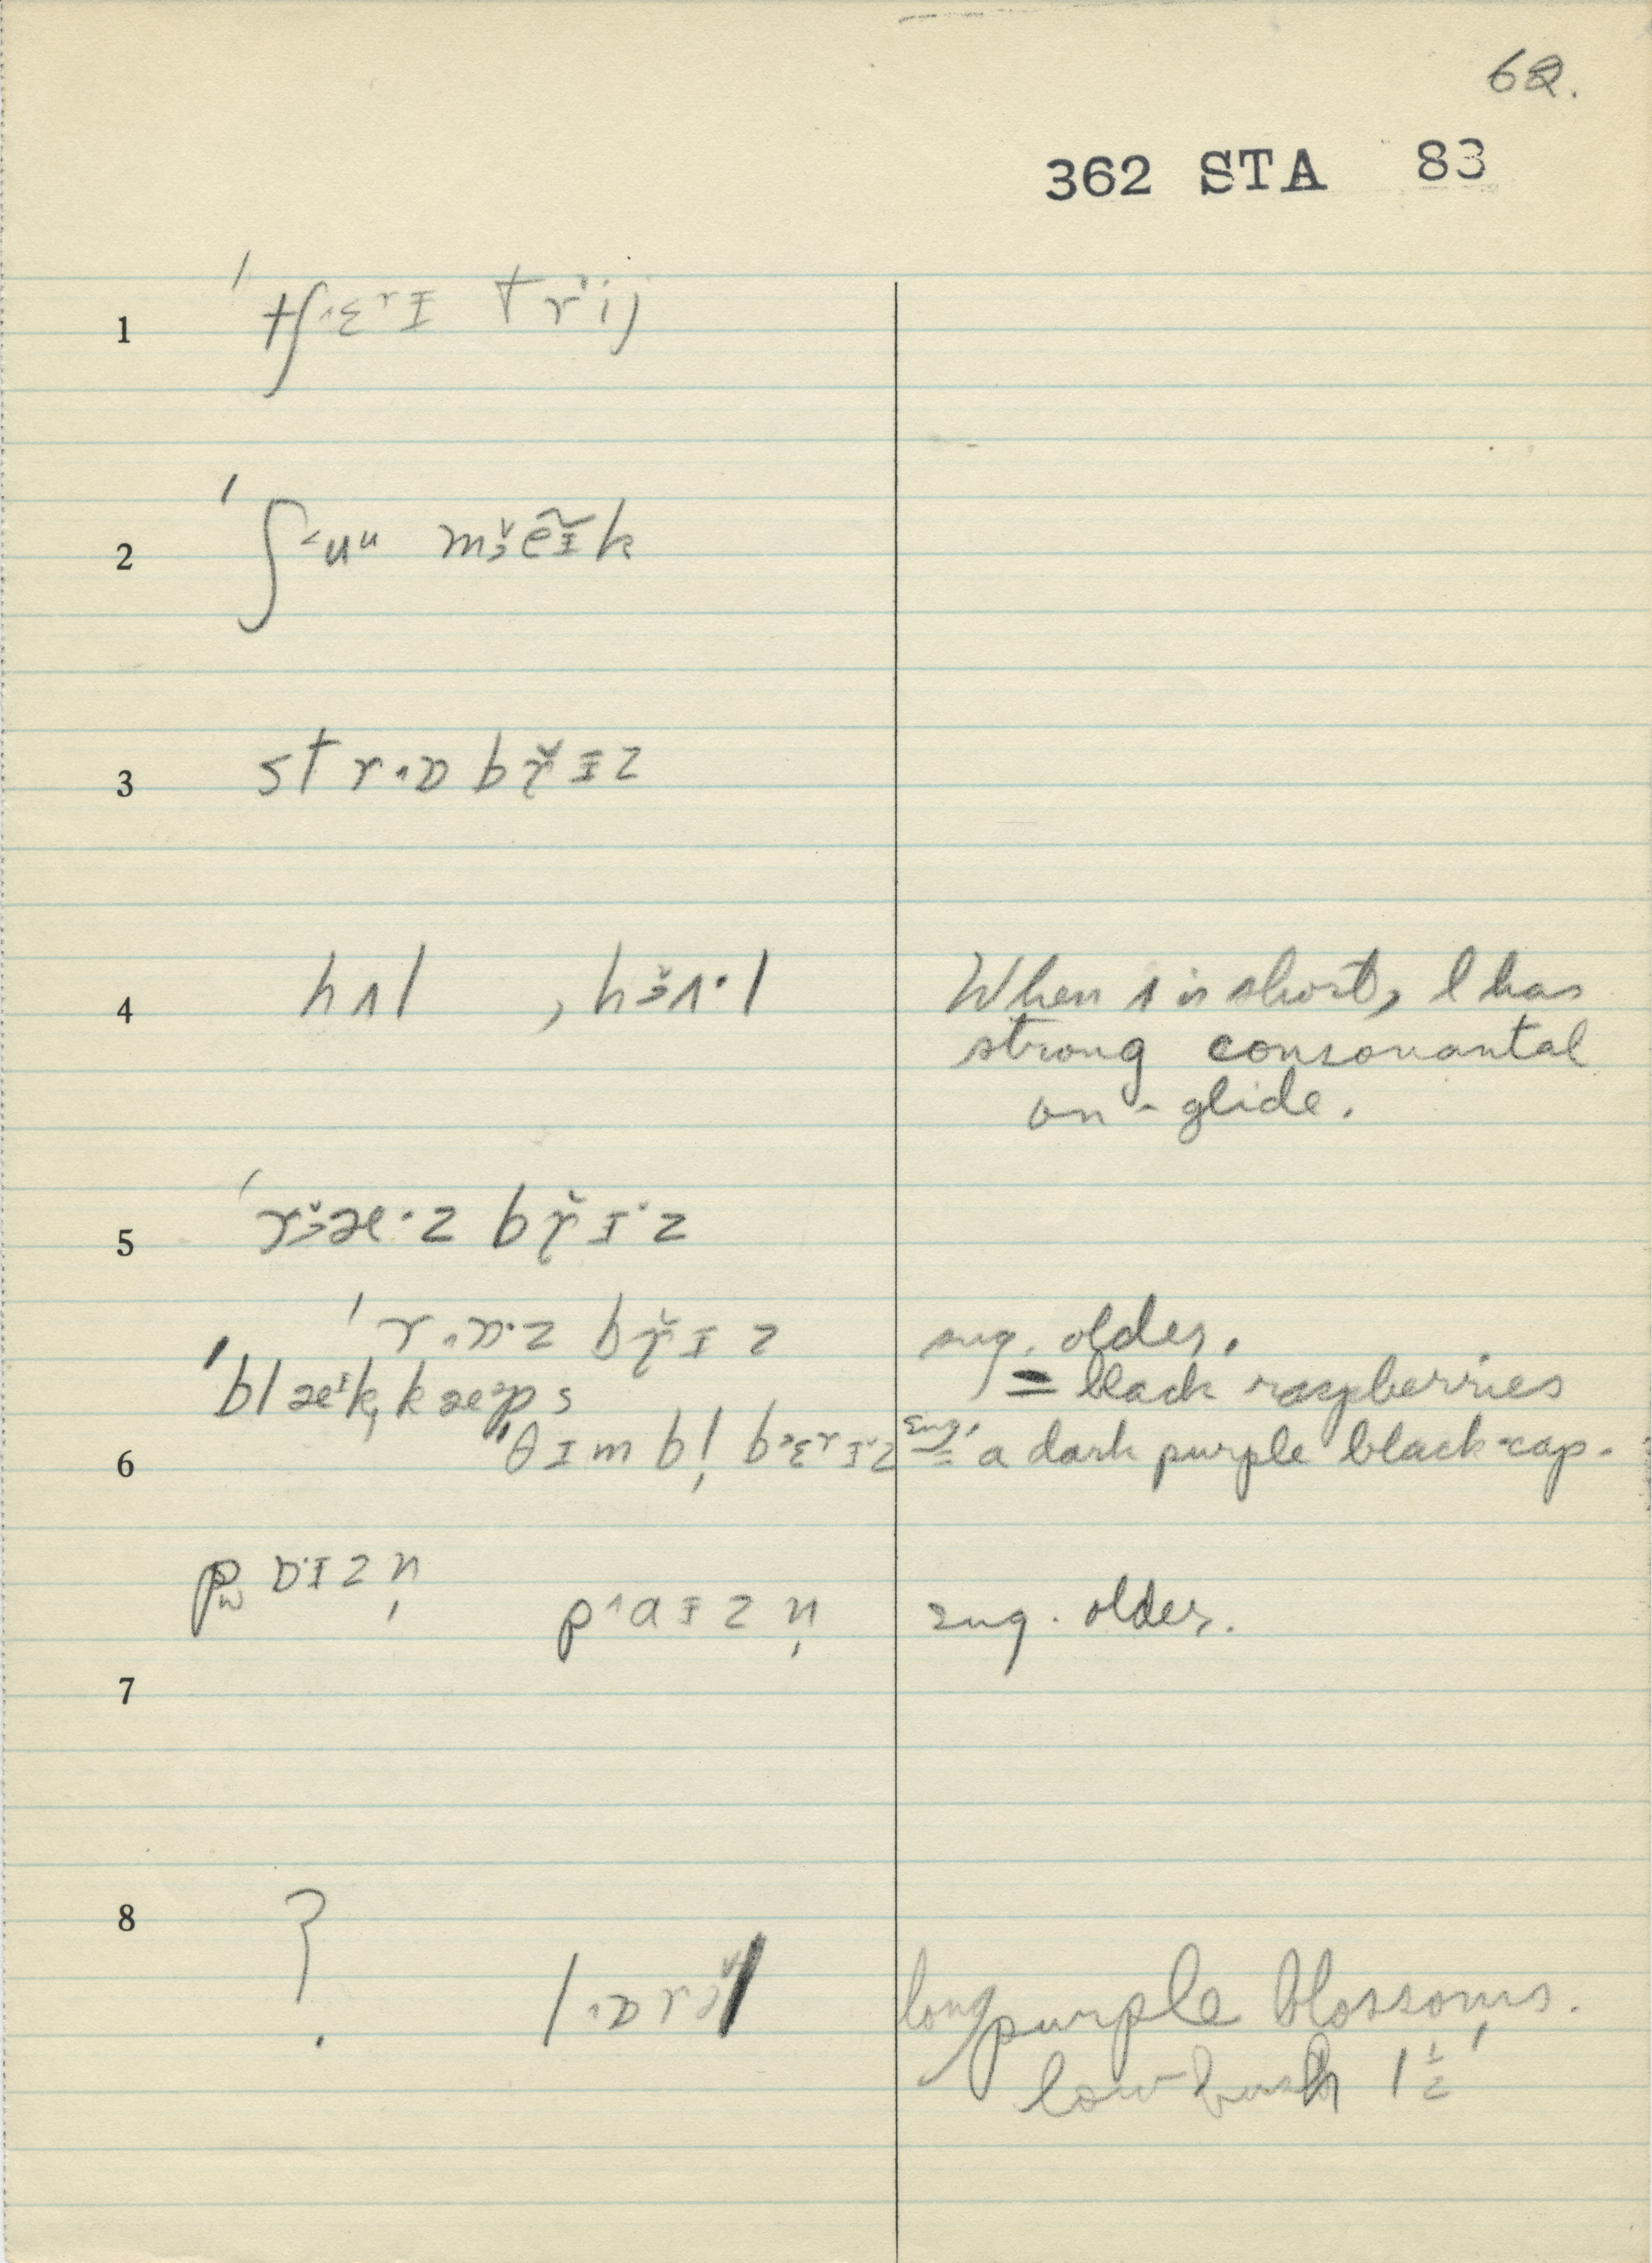 62.
362 STA 83
1 ˈtʃ˄ɛʳɪ trˈij
2 ˈʃ˂uᵘ mɜ̆ẽɪ̆k
3 str·ɒ bɤ̆ɪz
4 hʌl , hɜ̆ʌ·l When ʌ is short, l has
strong consonantal
on-glide.
5 ˈrɜ̆æ·z bɤ̆ɪ·z
ˈr·ɒ·z bɤ̆ɪz sug. older.
ˈblæᶦk, kæᵊps = black raspberries
6 ˈθɪmbl̩ b˃ɛʳɪ·z sug. = a dark purple black-cap.
pɒ·ɪzn̩
p˄aɪzn̩ sug. older.
7
8 ?
l·ɒrɜ̆l long purple blossoms.
low bush 1½'